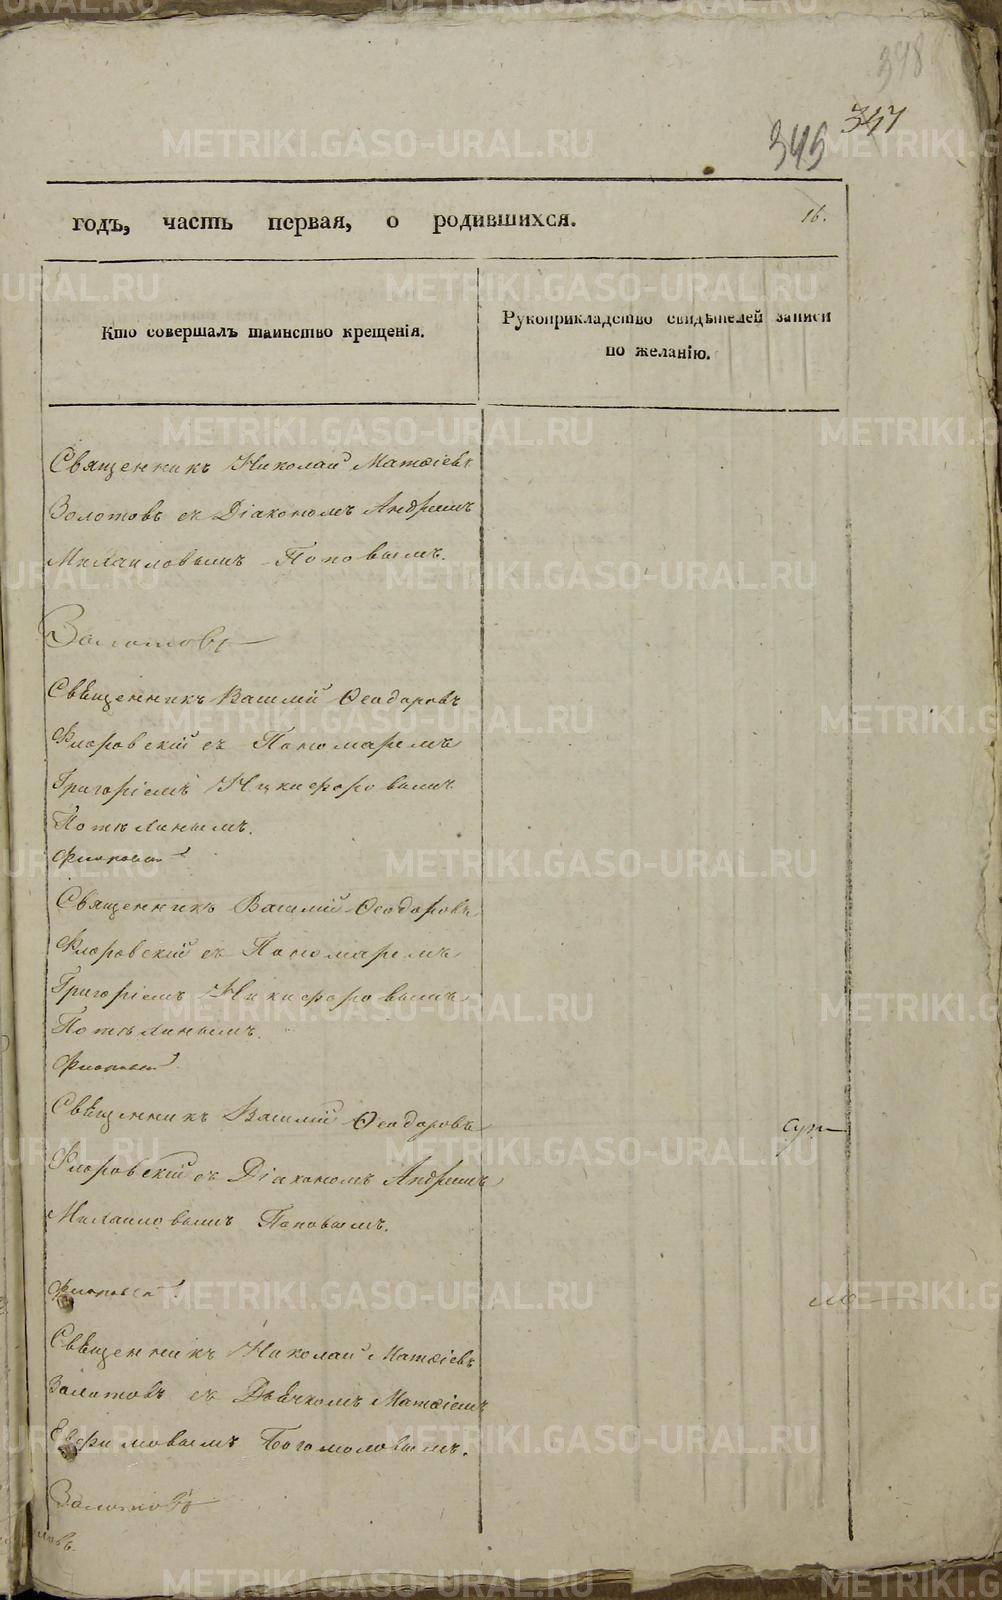 348
347
345
годъ, часть первая, о родившихся.
16.
Кто совершалъ таинство крещенія.
Рукоприкладство свидѣтелей записи
по желанію.
Священникъ Николай Матѳіевъ
Золотовъ съ Діакономъ Андреемъ
Михайловымъ Поповымъ.
Золотовъ
Свѣщенникъ Василій Ѳеодоровъ
Флоровскій съ Пономаремъ
Григоріемъ Никифоровымъ
Потѣлинымъ.
Флоровскій
Священникъ Василій Ѳеодоровъ
Флоровскій съ Пономаремъ
Григоріемъ Никифоровымъ
Потѣлинымъ.
Флоровскій
Свѣщенникъ Василій Ѳеодоровъ
Флоровскій съ Діакономъ Андреемъ
Михайловымъ Поповымъ.
Флоровскій
Свѣщенникъ Николай Матѳіевъ
Золотовъ съ Дьячкомъ Матѳіемъ
Ефимовымъ Богомоловымъ.
Золотовъ
METRIKI.GASO-URAL.RU